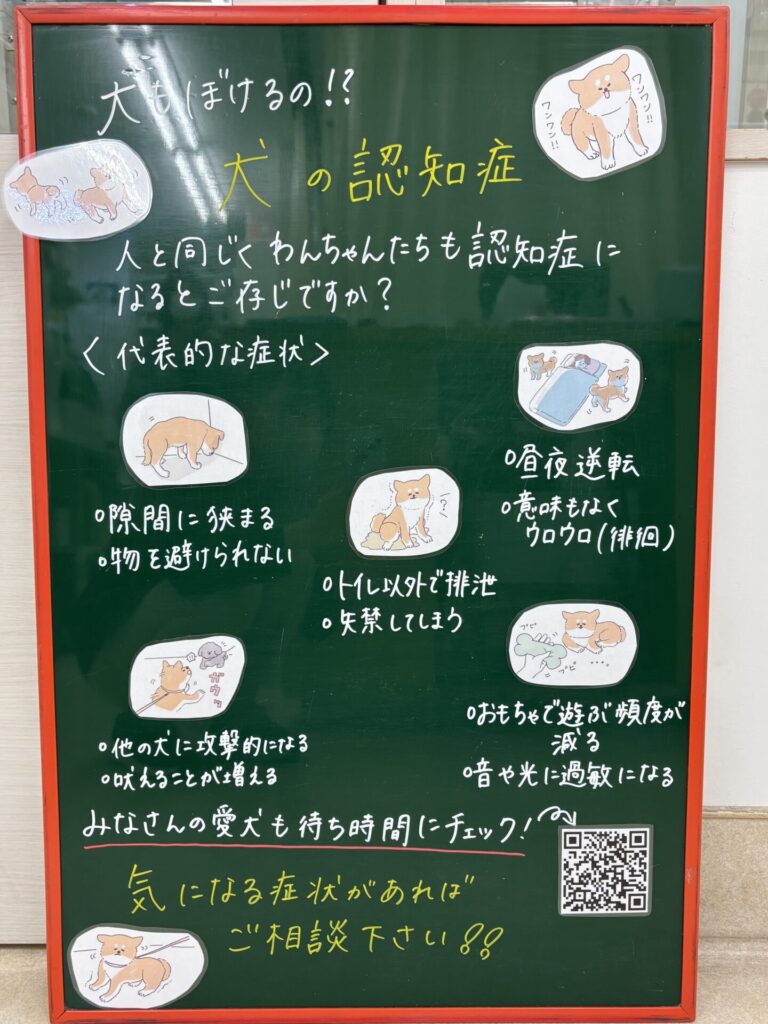 犬もぼけるの!?
ワンワン!!
ワンワン!!
犬の認知症
人と同じくわんちゃんたちも認知症に
なるとご存じですか?
<代表的な症状>
○隙間に挟まる
○物を避けられない
?
○トイレ以外で排泄
○失禁してしまう
○昼夜逆転
○意味もなく
ウロウロ(徘徊)
ガウッ
○他の犬に攻撃的になる
○吠えることが増える
プピ
プピ
....
○おもちゃで遊ぶ頻度が
減る
○音や光に過敏になる
みなさんの愛犬も待ち時間にチェック!
気になる症状があれば
ご相談下さい!!